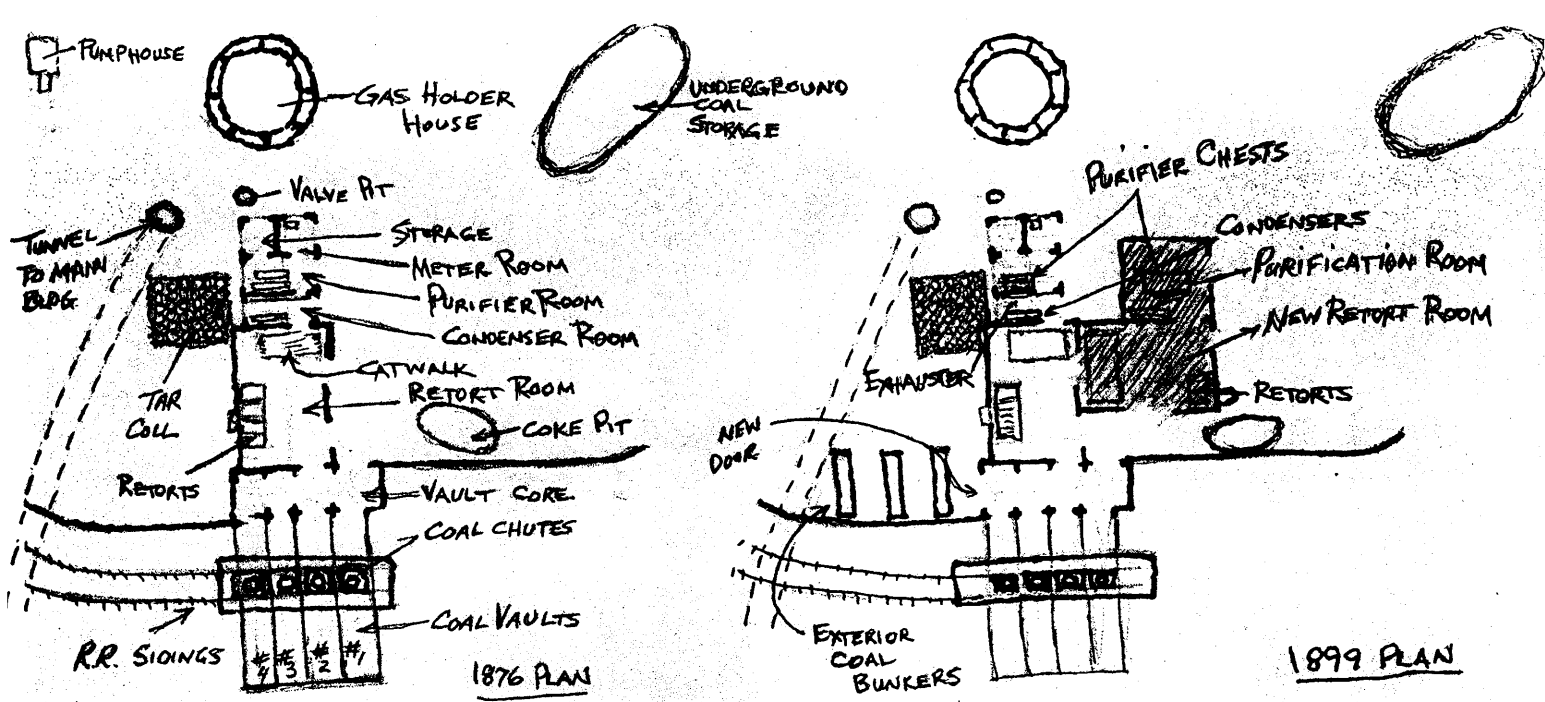 PUMPHOUSE
GAS HOLDER
HOUSE
UNDERGROUND
COAL
STORAGE
VALVE PIT
TUNNEL
TO MAIN
BLDG
STORAGE
METER ROOM
PURIFIER ROOM
CONDENSER ROOM
CATWALK
RETORT ROOM
TAR
COLL
COKE PIT
RETORTS
VAULT CORE
COAL CHUTES
COAL VAULTS
R.R. SIDINGS
#4
#3
#2
#1
1876 PLAN
PURIFIER CHESTS
CONDENSERS
PURIFICATION ROOM
NEW RETORT ROOM
EXHAUSTER
RETORTS
NEW
DOOR
EXTERIOR
COAL
BUNKERS
1899 PLAN